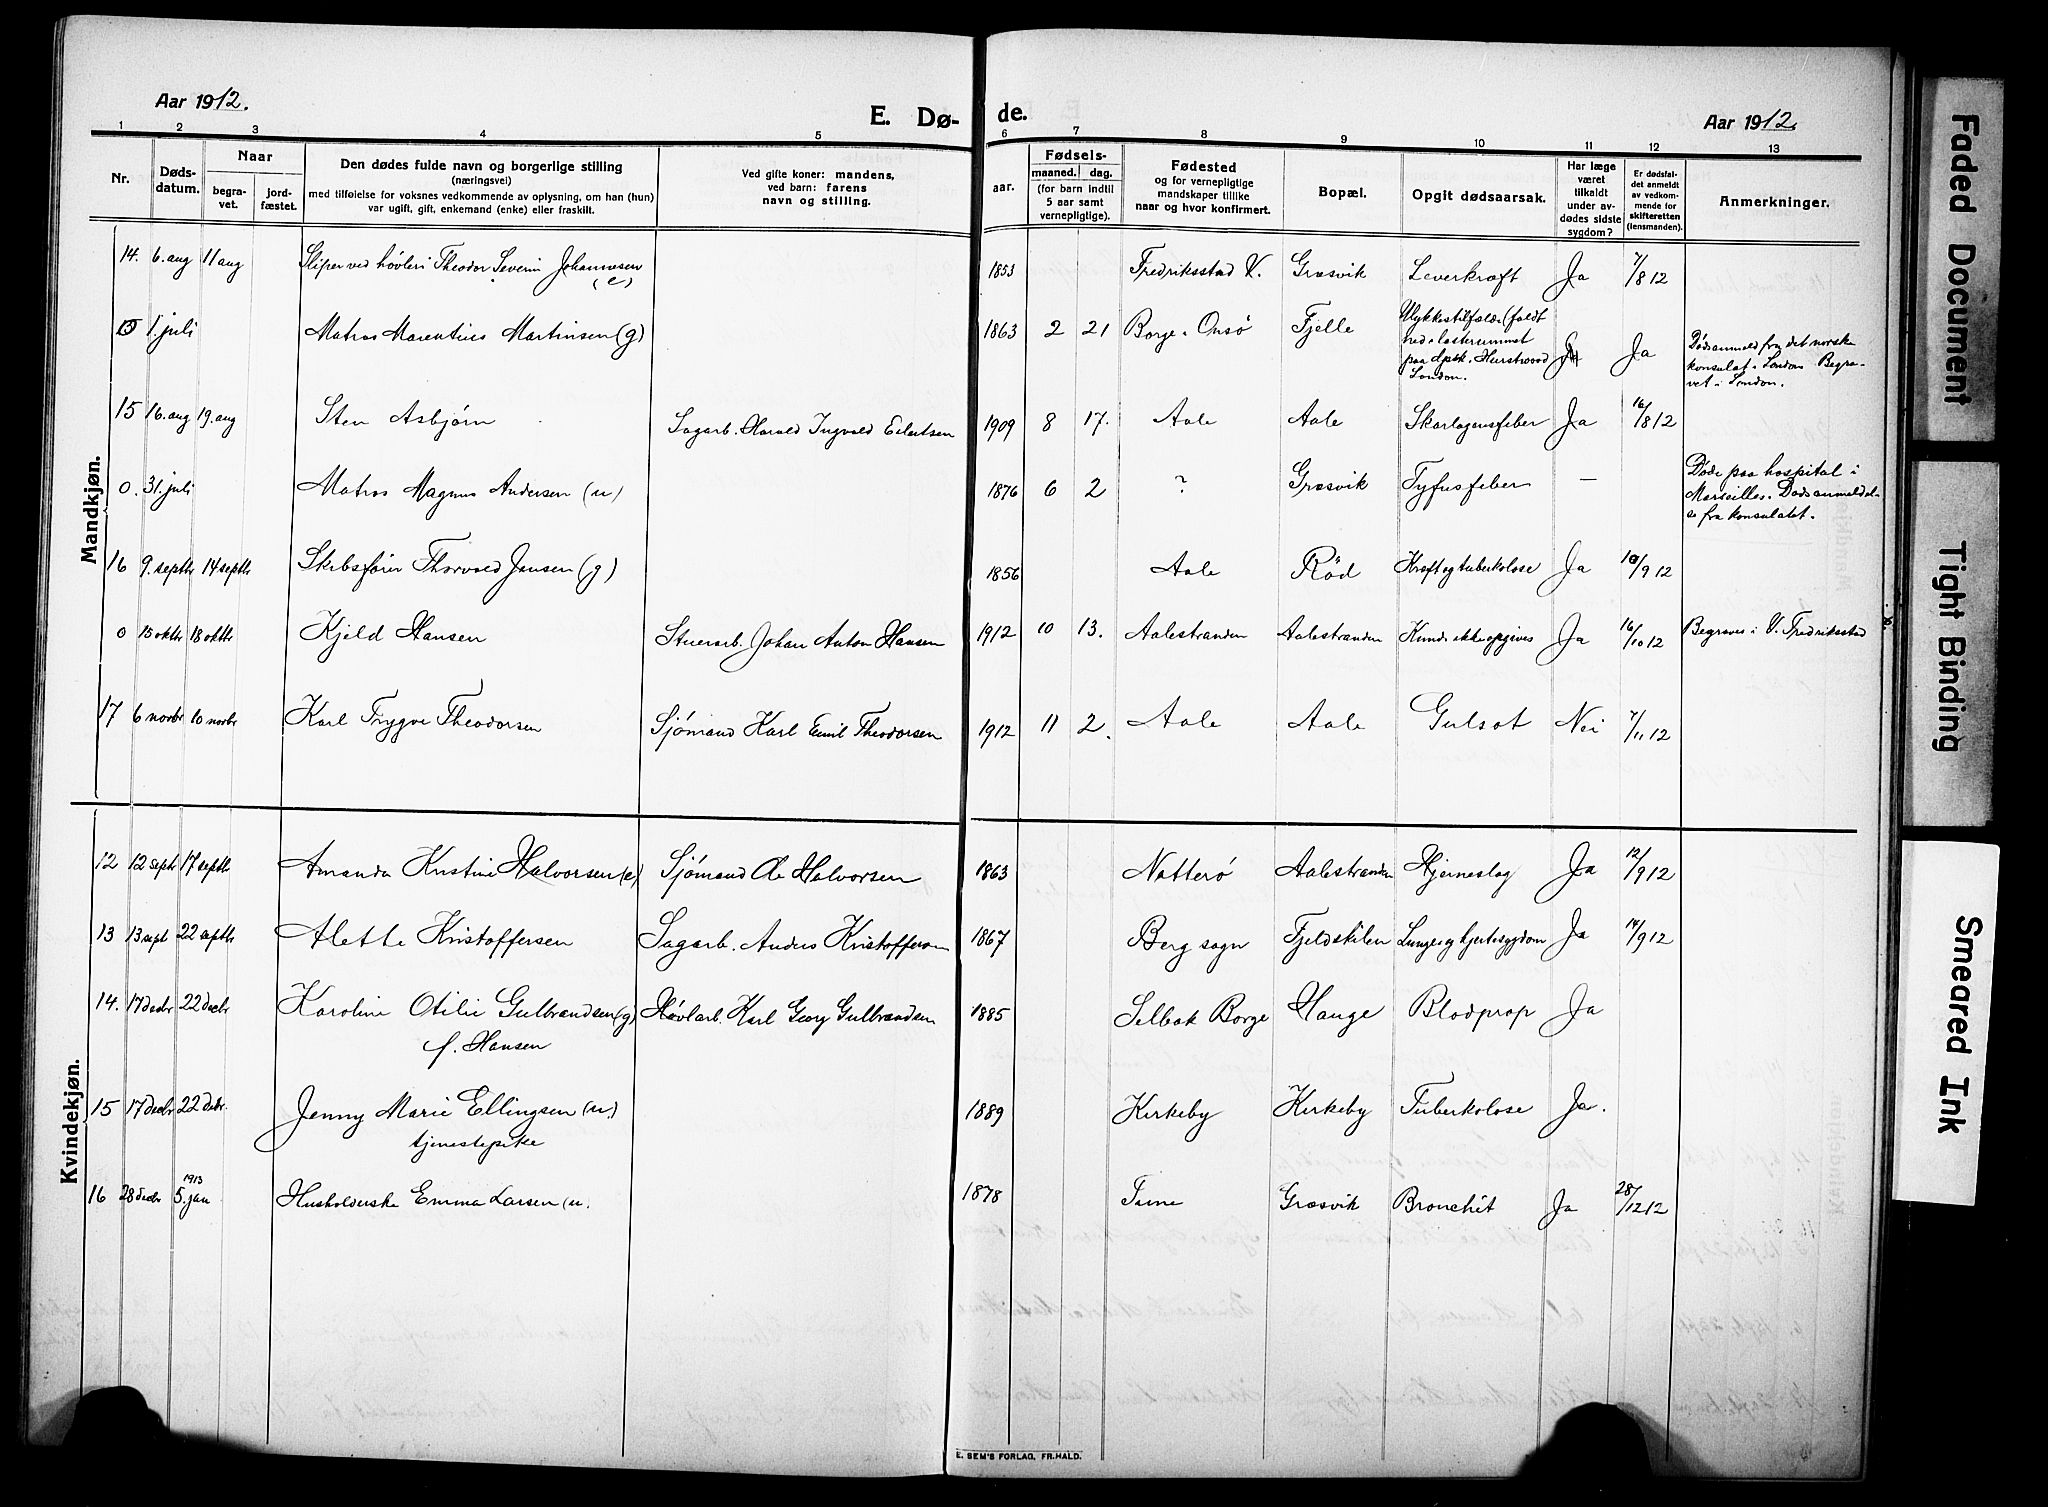 Aar 1912.
E. Dø-
de.
Aar 1912.
1 2 3 4 5 6 7 8 9 10 11 12 13
Nr.
Døds-
datum.
Naar
begra-
vet.
jord-
fæstet.
Den dødes fulde navn og borgerlige stilling
(næringsvei)
med tilføielse for voksnes vedkommende av oplysning, om han (hun)
var ugift, gift, enkemand (enke) eller fraskilt.
Ved gifte koner: mandens,
ved barn: farens
navn og stilling.
aar.
Fødsels-
maaned. dag.
(for barn indtil
5 aar samt
vernepligtige).
Fødested
og for vernepligtige
mandskaper tillike
naar og hvor konfirmert.
Bopæl.
Opgit dødsaarsak.
Har læge
været
tilkaldt
under av-
dødes sidste
sygdom?
Er dødsfal-
det anmeldt
av vedkom-
mende for
skifteretten
(lensmanden).
Anmerkninger.
Mandkjøn.
14. 6. aug 11 aug Sliper ved høvleri Theodor Severin Johannesen (e) 1853 Fredriksstad V. Græsvik Leverkræft Ja 7/8 12
1. juli Matros Marentius Martinsen (g) 1863 2 21 Borge i Onsø Fjelle Ulykkestilfælde (faldt
ned i lasterummet
paa dpsk. Hurstwood
London.
Ja
Dødsanmeld fra det norske
konsulat i London Begra-
vet i London.
15 16. aug 19. aug Sten Asbjørn Sagarb. Harald Ingvald Eilertsen 1909 8 17. Aale Aale Skarlagensfeber Ja 16/8 12
0. 31. juli Matros Magnus Andersen (u) 1876 6 2 ? Græsvik Tyfusfeber —
Døde paa hospital i
Marseilles. Dødsanmeldel-
se fra konsulatet.
16 9. septbr 14 septbr Skibsfører Thorvald Jensen (g) 1856 Aale Rød Kræft og tuberkolose Ja 10/9 12
0 15 oktbr 18 oktbr Kjeld Hansen Stuerarb. Johan Anton Hansen 1912 10 13. Aalestranden Aalestranden Kunde ikke opgives Ja 16/10 12 Begraves i V. Fredriksstad
17 6 novbr 10 novbr Karl Trygve Theodorsen Sjømand Karl Emil Theodorsen 1912 11 2. Aale Aale Gulsot Nei 7/11 12
Kvindekjøn.
12 12 septbr 17 septbr Amanda Kristine Halvorsen (e) Sjømand Ole Halvorsen 1863 Nøtterø Aalestranden Hjerneslag Ja 12/9 12
13 13 sept 22 septbr Alette Kristoffersen Sagarb. Anders Kristoffersen 1867 Berg sogn Fjeldskilen Lunge og hjertesygdom Ja 14/9 12
14. 17 decbr 22 decbr Karoline Otilie Gulbrandsen (g) Høvlarb. Karl Georg Gulbrandsen 1885 Selbak Borge Hauge Blodprop Ja
f. Hansen
15 17 decbr 22 decbr. Jenny Marie Ellingsen (u) 1889 Kirkeby Kirkeby Tuberkolose Ja.
tjenestepike
16 28 decbr 1913
5. jan Husholderske Emma Larsen (u. 1878 Tune Græsvik Bronchit Ja 28/12 12
E. SEM'S FORLAG, FR.HALD.
Faded Document
Tight Binding
Smeared Ink